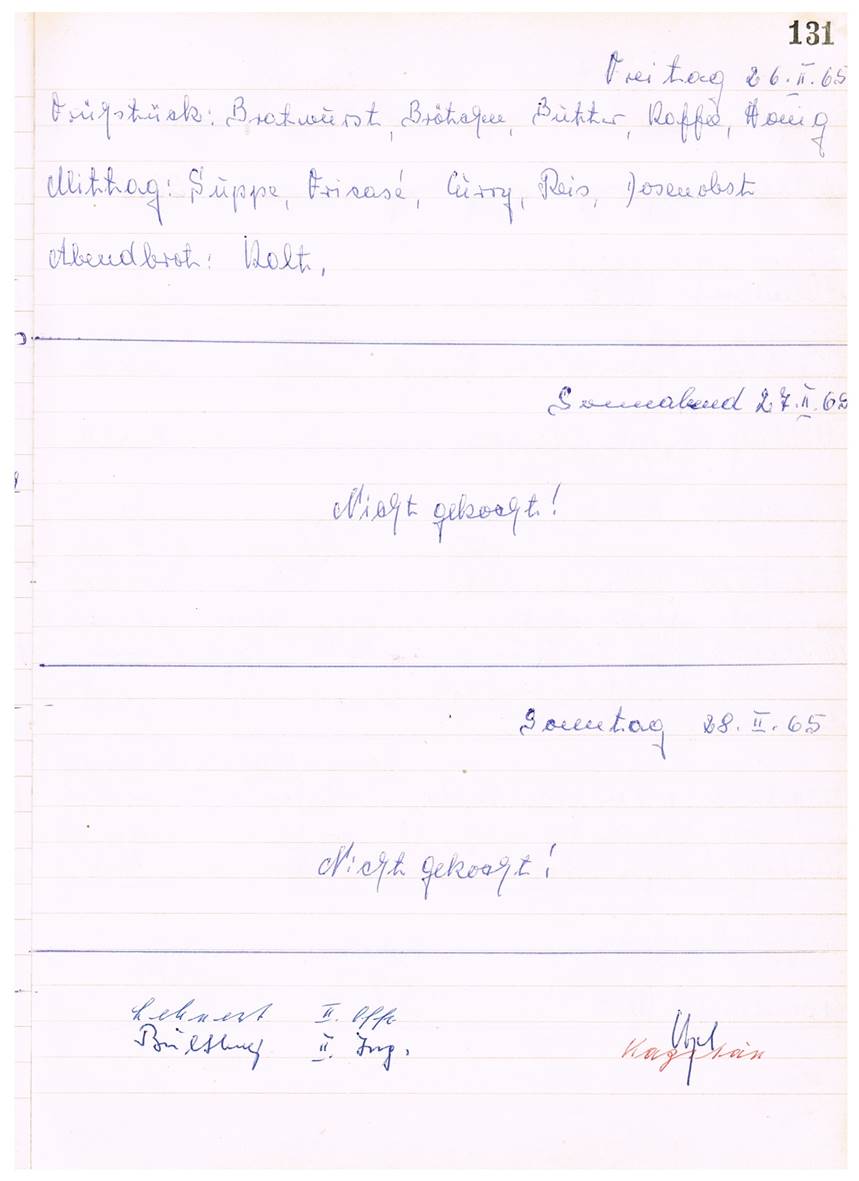 131
Freitag 26.II.65
Frühstück: Bratwurst, Brötchen, Butter, Kaffe, Honig
Mittag: Suppe, Fricasé, Curry, Reis, Dosenobst
Abendbrot: Kalt,
Sonnabend 27.II.65
Nicht gekocht!
Sonntag 28.II.65
Nicht gekocht!
Lehnert II. Offz
II. Ing.
Kapitän